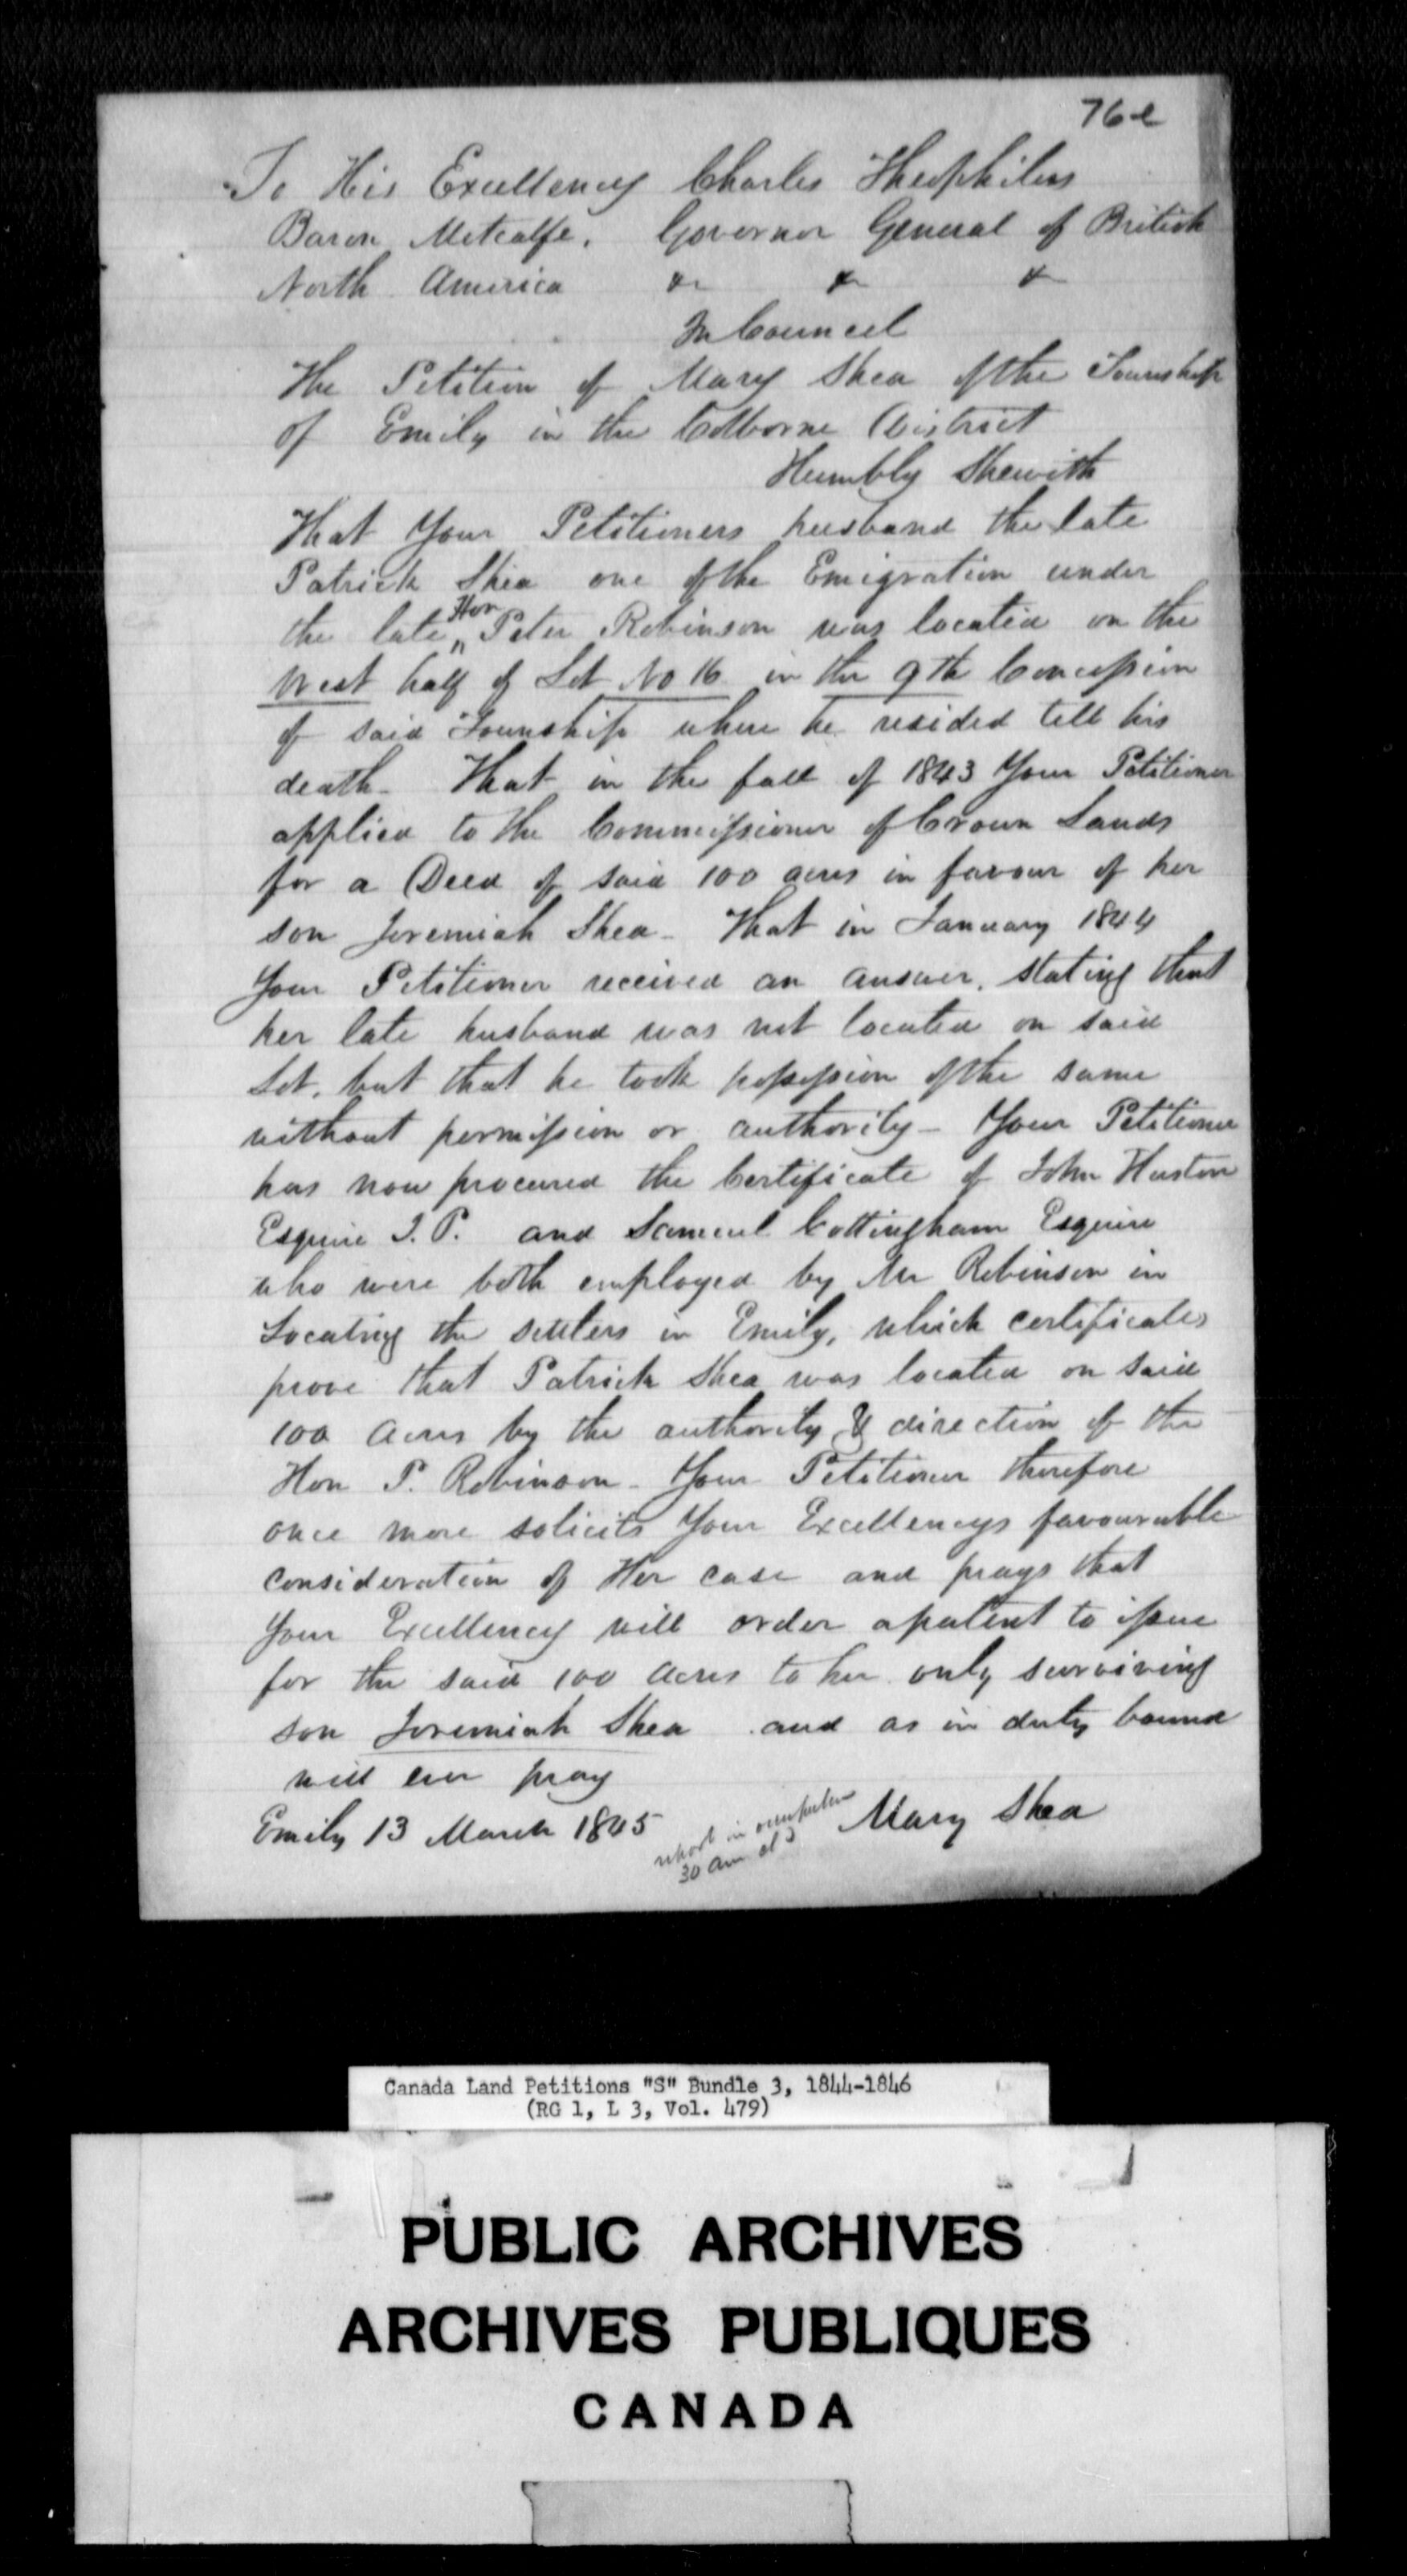 76-e
To His Excellency Charles Theophilus
Baron Metcalfe, Governor General of British
North America &c &c &c
In Council
The Petition of Mary Shea of the Township
of Emily in the Colborne District
Humbly Sheweth
That Your Petitioners husband the late
Patrick Shea one of the Emigration under
the late Hon Peter Robinson was located on the
West half of Lot No 16 in the 9th Concession
of said Township where he resided till his
death - That in the fall of 1843 Your Petitioner
applied to the Commissioner of Crown Lands
for a Deed of said 100 acres in favour of her
son Jeremiah Shea - That in January 1844
Your Petitioner received an answer, stating that
her late husband was not located on said
Lot, but that he took possession of the same
without permission or authority - Your Petitioner
has now procured the Certificate of John Huston
Esquire J.P. and Samuel Cottingham Esquire
who were both employed by Mr Robinson in
Locating the settlers in Emily, which certificates
prove that Patrick Shea was located on said
100 acres by the authority & direction of the
Hon P. Robinson - Your Petitioner therefore
once more solicits Your Excellencys favourable
consideration of Her case and prays that
Your Excellency will order a patent to issue
for the said 100 acres to her only surviving
son Jeremiah Shea and as in duty bound
will ever pray
Emily 13 March 1845
Mary Shea
30
Canada Land Petitions "S" Bundle 3, 1844-1846
(RG 1, L 3, Vol. 479)
PUBLIC ARCHIVES
ARCHIVES PUBLIQUES
CANADA